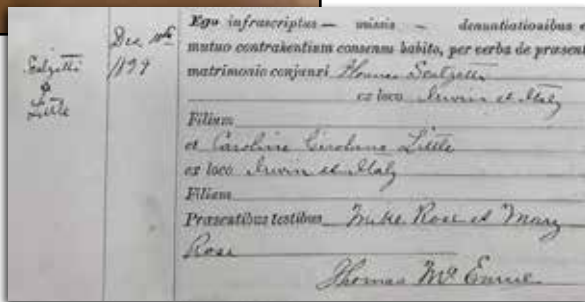 Scalzetti
&
Little
Dec
1899
Ego infrascriptus — missis — denuntiationibus
mutuo contrahentium consensu habito, per verba de præsent
matrimonio conjunxi Scalzetti
ex loco Irwin et Italy
Filium
et Caroline Little
ex loco Irwin et Italy
Filiam
Præsentibus testibus Mike Rose et Mary
Rose
Thomas Mc